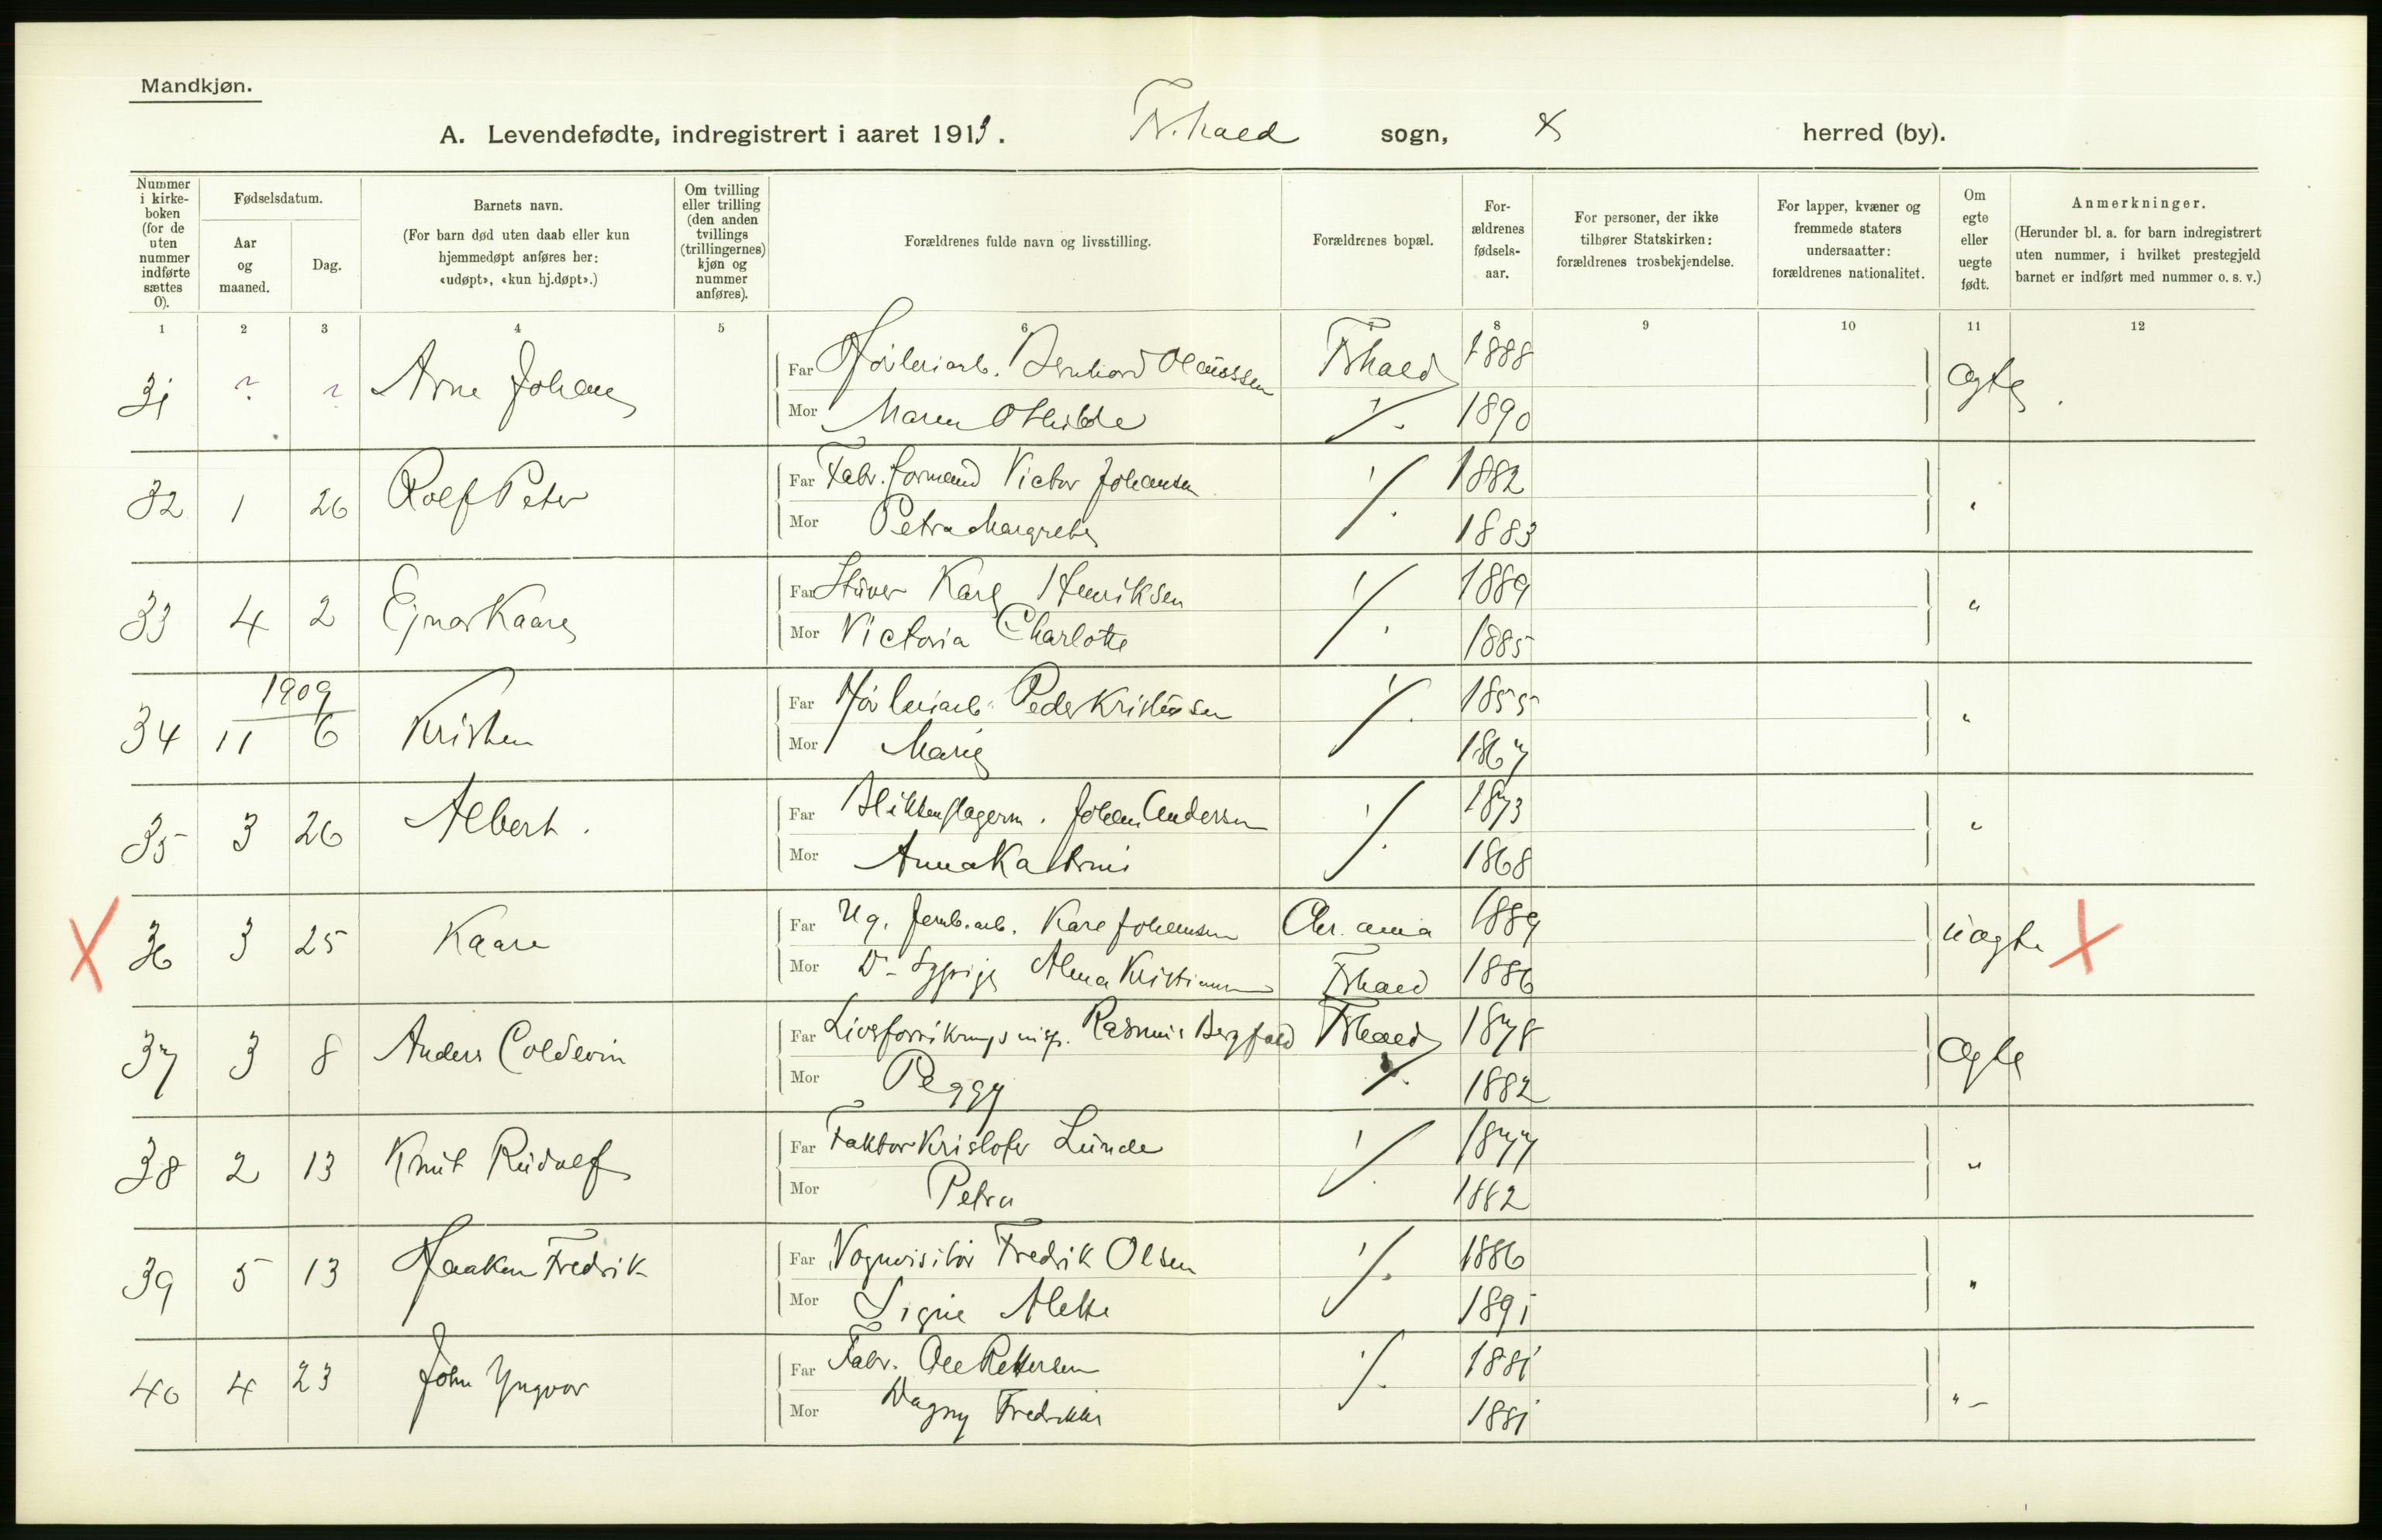 Mandkjøn.
A. Levendefødte, indregistrert i aaret 1913. Fr.hald sogn, herred (by).
Nummer i kirke-boken (for de uten nummer indførte sættes 0).
Fødselsdatum.
Aar og maaned.
Dag.
Barnets navn.
(For barn død uten daab eller kun hjemmedøpt anføres her: «udøpt», «kun hj.døpt».)
Om tvilling eller trilling (den anden tvillings (trillingernes) kjøn og nummer anføres).
Forældrenes fulde navn og livsstilling.
Forældrenes bopæl.
For-ældrenes fødsels-aar.
For personer, der ikke tilhører Statskirken: forældrenes trosbekjendelse.
For lapper, kvæner og fremmede staters undersaatter: forældrenes nationalitet.
Om egte eller uegte født.
Anmerkninger.
(Herunder bl. a. for barn indregistrert uten nummer, i hvilket prestegjeld barnet er indført med nummer o. s. v.)
1 2 3 4 5 6 7 8 9 10 11 12
31 ? ? Arne Johan Far Høvleriarb. Bernhard Olaussen Frhald 1888 Ægte
Mor Maren Othilde ./. 1890
32 1 26 Rolf Peter Far Fabr.formand Victor Johansen ./. 1882 "
Mor Petra Margrethe 1883
33 4 2 Ejnar Kaare Far Stuver Karl Henriksen ./. 1889 "
Mor Victoria Charlotte 1885
1909
34 11 6 Kristen Far Høvleriarb. Peder Kristensen ./. 1855 "
Mor Marie 1867
35 3 26 Albert. Far Blikkenslagerm. Johan Andersen ./. 1873 "
Mor Anna Katrine 1868
36 3 25 Kaare Far Ug. Jernb.arb. Karl Johansen Chr.ania 1889 uægte
Mor D- Sypige Alma Kristiansen Frhald 1886
37 3 8 Anders Coldevin Far Livsforsikringsinsp. Rasmus Bergfald Frhald 1878 Ægte
Mor Peggy ./. 1882
38 2 13 Knut Rudolf Far Faktor Kristofer Lunde ./. 1877 "
Mor Petra 1882
39 5 13 Haakon Fredrik Far Vognvisitør Fredrik Olsen ./. 1886 "
Mor Signe Alette 1891
40 4 23 John Yngvar Far Fabr. Ole Pettersen ./. 1881 " -
Mor Dagny Fredrikke 1881